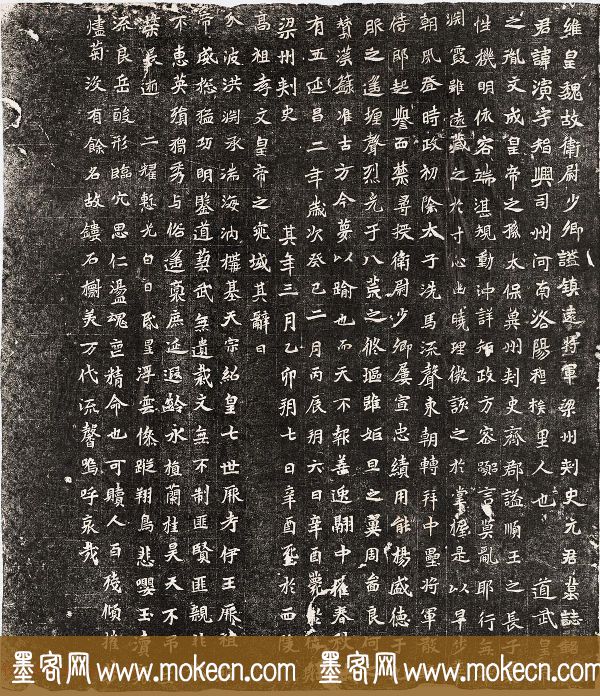 維皇魏故衛尉少卿謚鎮遠將軍梁州刺史元君墓誌銘
君諱演字智興司州河南洛陽穆族里人也 道武皇
之胤文成皇帝之孫太保冀州刺史齊郡謚順王之長子
性機明依容端湛規動沖詳知政方容啣言莫亂耶行無
渊霞雖遠藏之於寸心幽曉理微談之於掌握是以早步
朝風登時政初除太子洗馬流聲東朝轉拜中壘將軍散
侍郎起譽西禁尋授衛尉少卿屢宣忠績用能楊威德于
眠之遥㙻聲烈光于八荒之俻堰雖姬旦之翼周畣良何
贊漢蘇准古方今蔑以喻也而天不報善迅翮中摧春秋
有五延昌二年歲次癸巳二月丙辰朔六日辛酉薨於
梁州刾史 其年三月乙卯朔七日辛酉窆於西陵
高祖孝文皇帝之兆域其辭曰
分波洪渊承湍海汭構基天宗紹皇七世厥考伊王厥祖
帝威惣猛功明鑒道藝武無遺裁文無不制匪賢匪親
不惠英穎獨秀与俗遥裹庶延遐齡永植蘭桂昊天不弔
桀晨逝 二耀愆光白日昏星浮雲悠蹤翔鳥悲嚶玉
流良岳酸形臨穴思仁盪魂喪精命也可贖人百殘傾摧
燼菊沒有餘名故鏤石櫥美万代流馨嗚呼哀哉
墨客网 www.mokecn.com 墨客网 www.mokecn.com